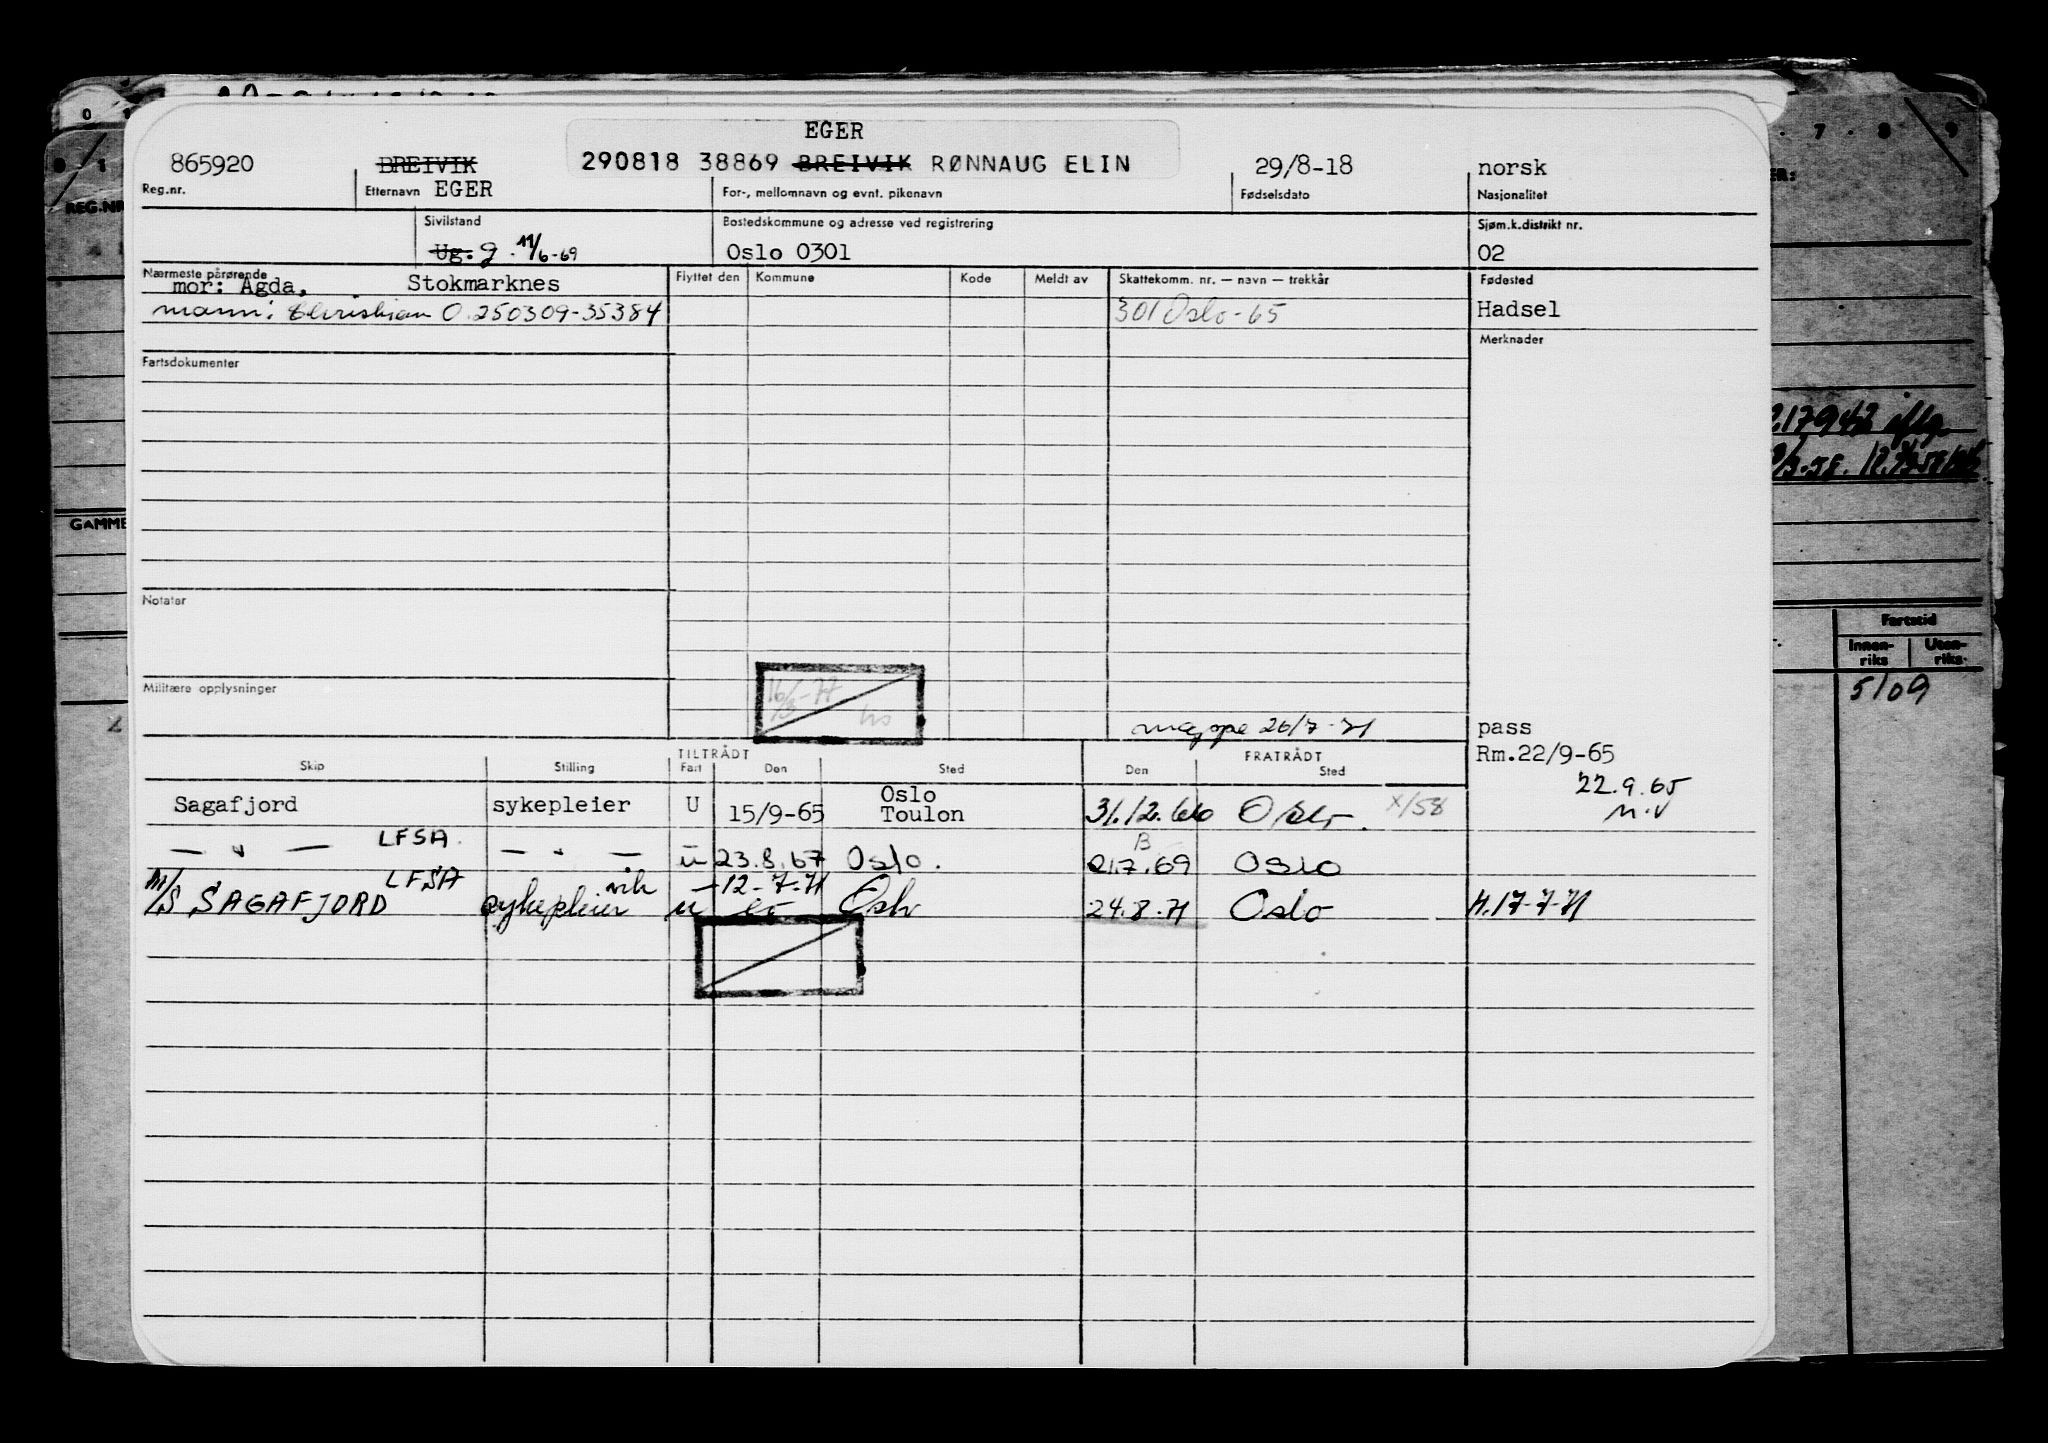 EGER
865920 BREIVIK 290818 38869 BREIVIK RØNNAUG ELIN 29/8-18 norsk
Reg.nr. Etternavn EGER For-, mellomnavn og evnt. pikenavn Fødselsdato Nasjonalitet
Sivilstand Bostedskommune og adresse ved registrering Sjøm.k.distrikt nr.
Ug. g. 11/6-69 Oslo 0301 02
Nærmeste pårørende Flyttet den Kommune Kode Meldt av Skattekomm. nr. — navn — trekkår Fødested
mor: Agda, Stokmarknes
mann: Christian O. 250309-35384 301 Oslo-65 Hadsel
Merknader
Fartsdokumenter
217942 iflg.
GAMME
Notater
Fartstid
Innen-riks Uten-riks.
5109
Militære opplysninger
16/3-77
mappe 26/7-71 pass
TILTRÅDT FRATRÅDT Rm.22/9-65
Skip Stilling Fart Den Sted Den Sted
22.9.65
Sagafjord sykepleier U 15/9-65 Oslo Toulon 31.12.66 Oslo. X/58
— " — LFSA. — " — u 23.8.67 Oslo. 21.7.69 Oslo
M/S SAGAFJORD LFSA sykepleier vik u 12-7-71 Oslo 24.8.71 Oslo H.17-7-71